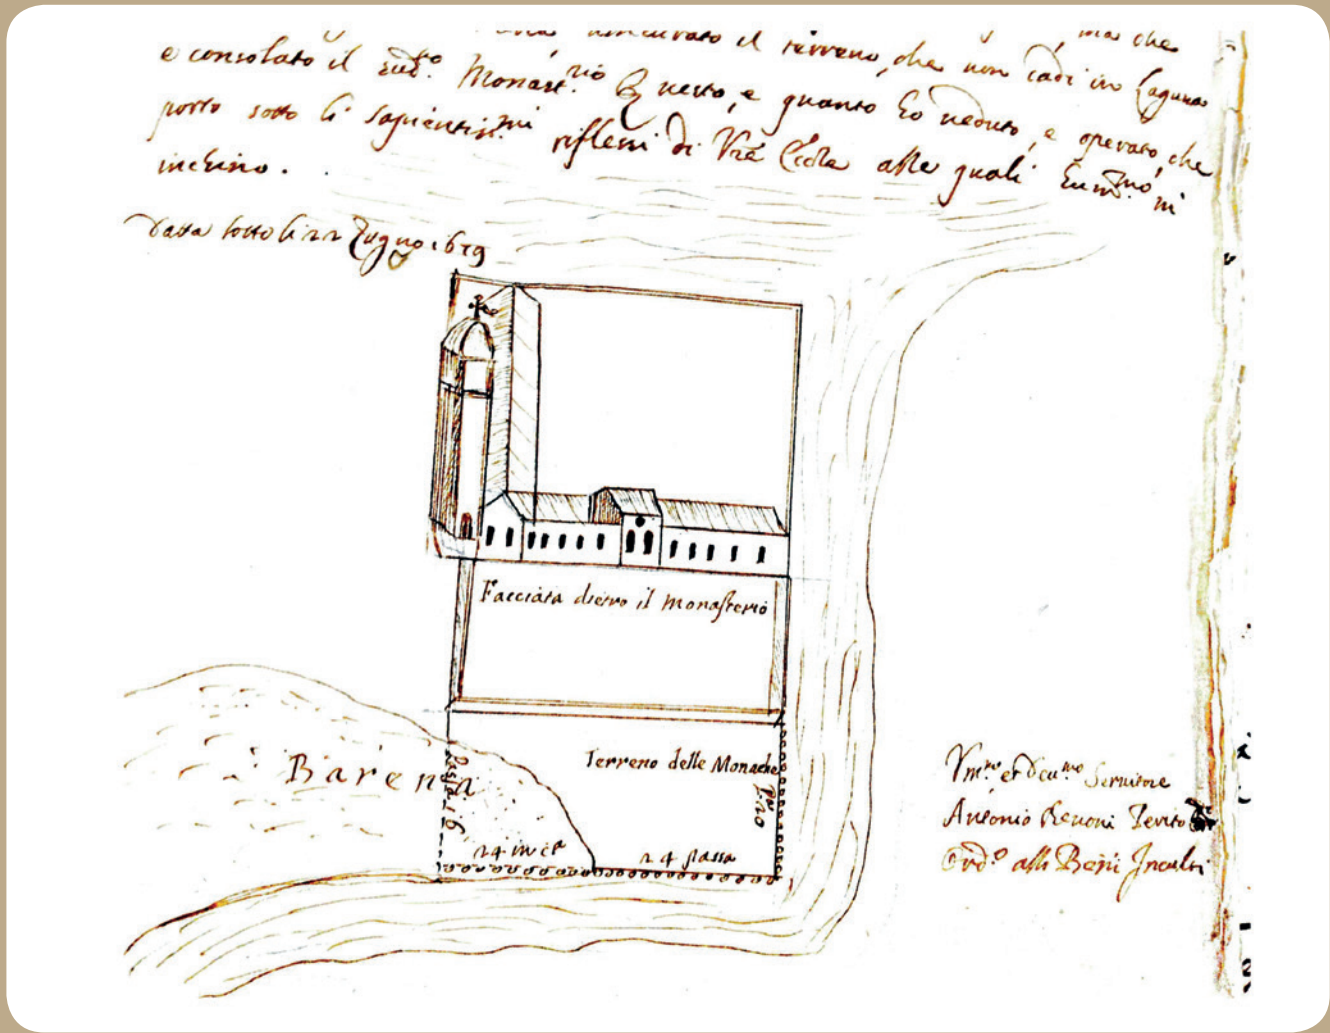 il terreno, che non cadi in Laguna, ma che
e consolato il sud.to Monast.rio Questo, e quanto ho veduto, e operato, che
porto sotto li sapientiss.mi riflessi di V.re Ecc.ze alle quali hum.mo m'
inchino.
Data sotto li 22 Zugno 1679
Facciata dietro il Monasterio
Terreno delle Monache
Barena
passa 16
p. 20
24 in c.a
24 passa
Vm.mo et Deu.mo Seruitore
Antonio Benoni Perito
Ord.o alli Beni Inculti